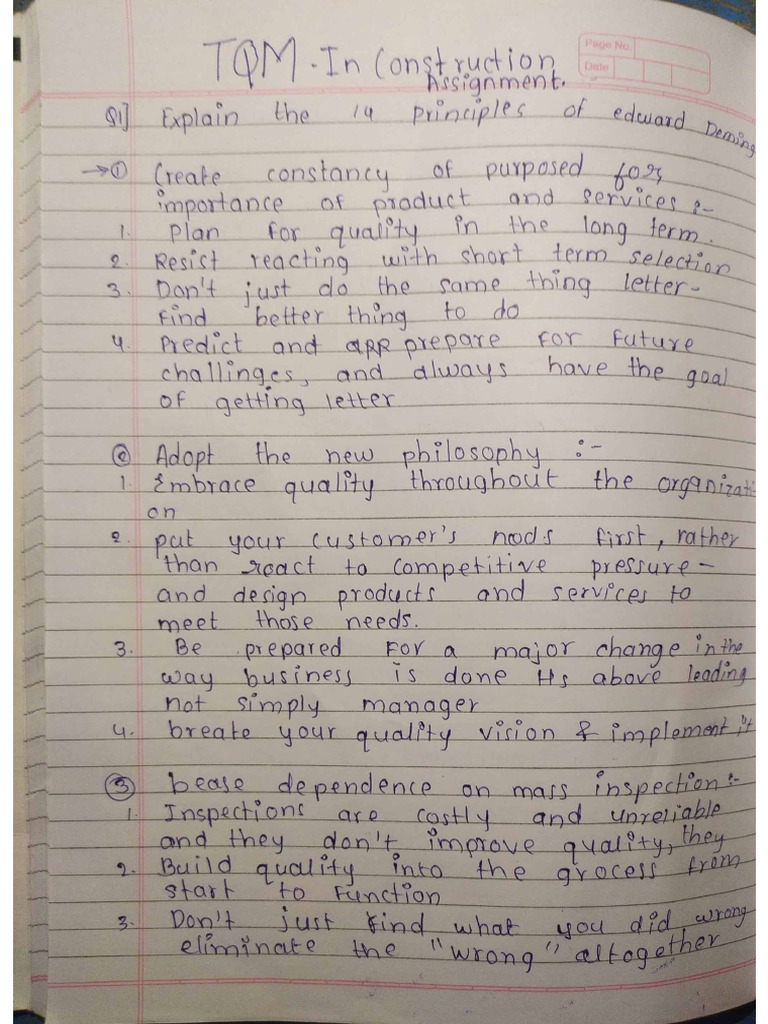 Page No.
Date
TQM - In Construction
Assignment.
Q1] Explain the 14 principles of edward Deming
→ ① Create constancy of purposed for
importance of product and services :-
1. Plan for quality in the long term.
2. Resist reacting with short term selection
3. Don't just do the same thing letter-
find better thing to do
4. Predict and prepare for future
challinges, and always have the goal
of getting letter
② Adopt the new philosophy :-
1. Embrace quality throughout the organizati-
on
2. put your customer's nods first, rather
than react to competitive pressure -
and design products and services to
meet those needs.
3. Be prepared for a major change in the
way business is done Hs above leading
not simply manager
4. breate your quality vision & implement it
③ bease dependence on mass inspection:-
1. Inspections are costly and unreliable
and they don't improve quality, they
2. Build quality into the grocess from
start to function
3. Don't just find what you did wrong
eliminate the "wrong" altogether